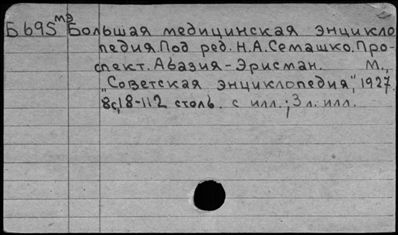 Б695 мэ Большая медицинская энцикло
педия. Под ред. Н.А.Семашко. Про-
спект. Авазия-Эрисман. М.,
„Советская энциклопедия", 1927.
8с, 18-112 столб. с илл.; 3 л. илл.